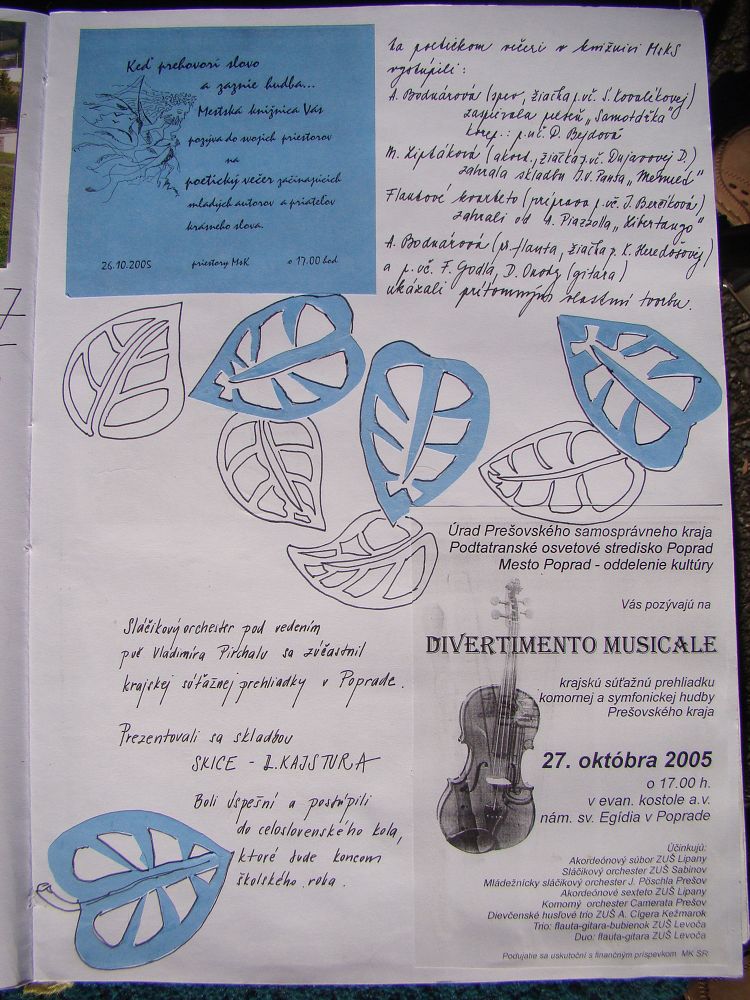 Keď prehovorí slovo
a zaznie hudba...
Mestská knižnica Vás
pozýva do svojich priestorov
na
poetický večer začínajúcich
mladých autorov a priateľov
krásneho slova.
26.10.2005 priestory MsK o 17.00 hod
Na poetickom večeri v knižnici MsKS
vystúpili:
A. Bodnárová (spev, žiačka p. uč. S. Kovalíkovej)
zaspievala pieseň „Samotárka"
korep.: p. uč. D. Bejdová
M. Liptáková (akord., žiačka p. uč. Dujavovej D.)
zahrala skladbu
Flautové kvarteto (príprava p. uč. J. Berčíková)
zahrali od A. Piazzolla „Libertango"
A. Bodnárová (pr. flauta, žiačka p. K. Heredošovej)
a p. uč. F. Godla, D. Onody (gitara)
ukázali prítomným vlastnú tvorbu.
Úrad Prešovského samosprávneho kraja
Podtatranské osvetové stredisko Poprad
Mesto Poprad - oddelenie kultúry
Vás pozývajú na
DIVERTIMENTO MUSICALE
krajskú súťažnú prehliadku
komornej a symfonickej hudby
Prešovského kraja
27. októbra 2005
o 17.00 h.
v evan. kostole a.v.
nám. sv. Egídia v Poprade
Účinkujú:
Akordeónový súbor ZUŠ Lipany
Sláčikový orchester ZUŠ Sabinov
Mládežnícky sláčikový orchester J. Pöschla Prešov
Akordeónové sexteto ZUŠ Lipany
Komorný orchester Camerata Prešov
Dievčenské husľové trio ZUŠ A. Cígera Kežmarok
Trio: flauta-gitara-bubienok ZUŠ Levoča
Duo: flauta-gitara ZUŠ Levoča
Podujatie sa uskutoční s finančným príspevkom MK SR
Sláčikový orchester pod vedením
p. uč Vladimíra Pirchalu sa zúčastnil
krajskej súťažnej prehliadky v Poprade.
Prezentovali sa skladbou
SKICE - L. KAJSTURA
Boli úspešní a postúpili
do celoslovenského kola,
ktoré bude koncom
školského roka.
7